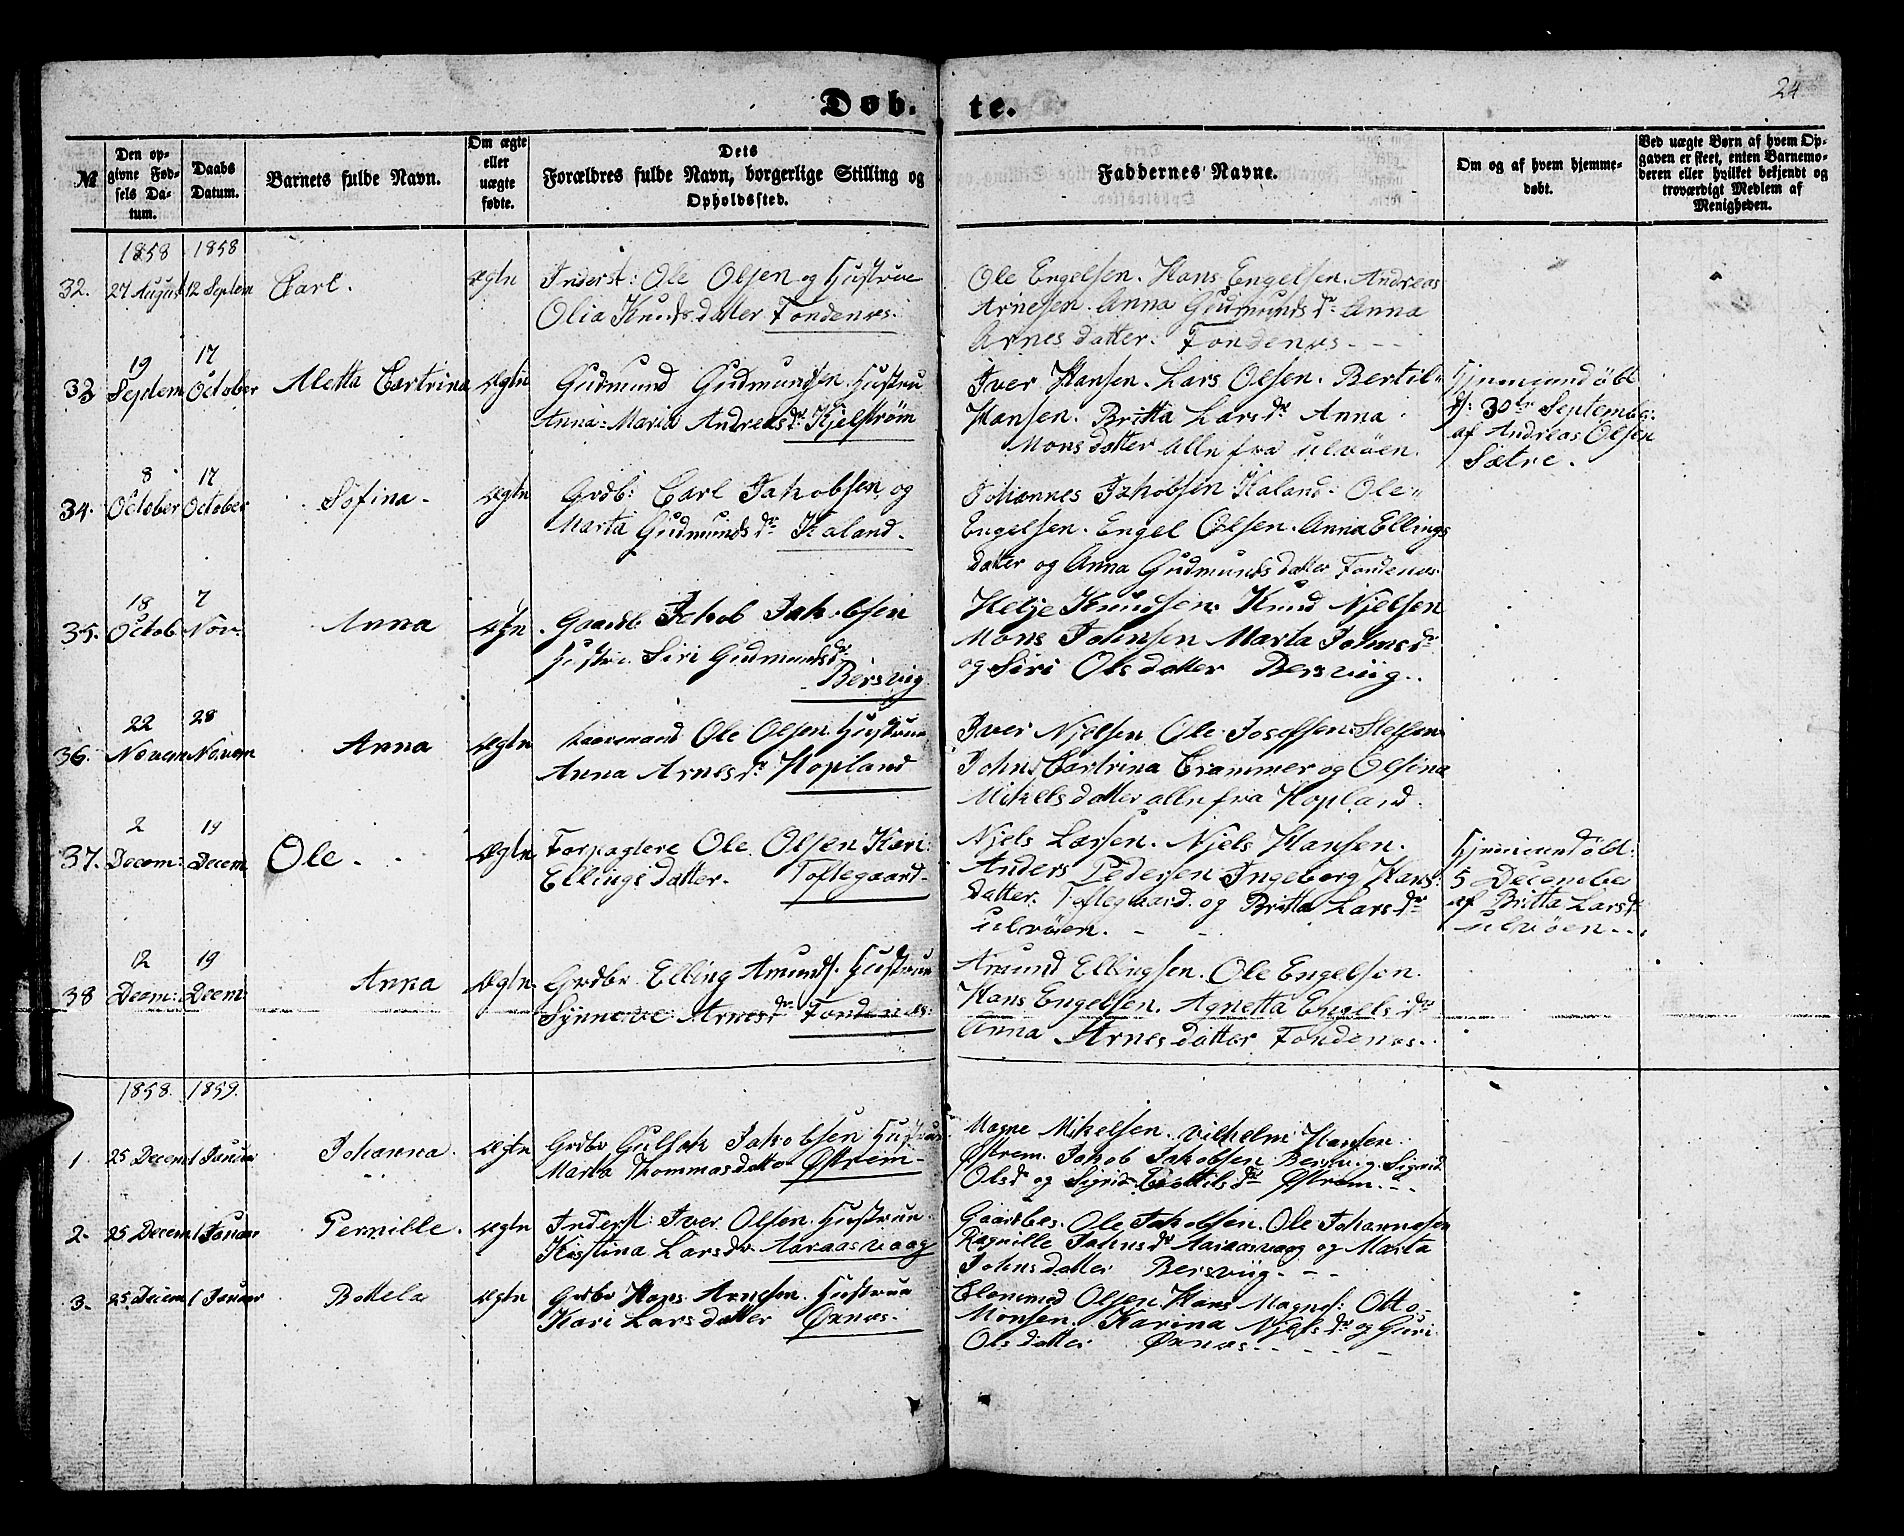 24
Døb. te.
№
Den op-
givne Fød-
sels Da-
tum.
Daabs
Datum.
Barnets fulde Navn.
Om ægte
eller
uægte
fødte.
Dets
Forældres fulde Navn, borgerlige Stilling og
Opholdssted.
Faddernes Navne.
Om og af hvem hjemme-
døbt.
Ved uægte Børn af hvem Op-
gaven er skeet, enten Barnemo-
deren eller hvilket bekjendt og
troværdigt Medlem af
Menigheden.
1858 1858
32. 27 August 12 Septem Carl. Ægte Inderst: Ole Olsen og Hustrue
Olia Knudsdatter Fondenæs.
Ole Engelsen. Hans Engelsen. Andreas
Arnesen. Anna Gudmunds dr Anna
Arnes datter: Fondenæs - - -
33 19 Septem 17 October Aletta Cartrina Ægte Gudmund Gudmundsen Hustru
Anna-Maria Andreas dr Kjelstrøm
Iver Hansen. Lars Olsen. Bertil
Hansen. Britta Lars dr Anna
Mons datter alle fra ulvøen.
Hjemmendøbt
d: 30te September
af Andreas Olsen
Sætre.
34. 8 October 17 October Sofina. Ægte Grdb: Carl Jakobsen og
Marta Gudmunds dr Kaland.
Johannes Jakobsen Kaland. Ole
Engelsen. Engel Olsen. Anna Ellings
datter og Anna Gudmunds datter Fondenæs.
35. 18 Octob 7 Nov. Anna Ægte Gaardb Jakob Jakobsen
Hustru Siri Gudmunds dr
Bersviig
Helje Knudsen. Knud Njelsen
Mons Johnsen Marta Johns dr
og Siri Ols datter Bersviig.
36. 22 Novem 28 Novem Anna Ægte Ole Olsen Hustrue
Anna Arnes dr Hopland
Iver Njelsen Ole Joseffsen Steffen
Johns Cartrina Crammer og Olsina
Mikels datter alle fra Hopland.
37. 2 Decem: 19 Decem Ole. Ægte Forpagtere Ole Olsen Kari
Ellings datter. Toftegaard.
Njels Larsen. Njels Hansen.
Anders Pedersen Ingeborg Hans
datter. Toftegaard. og Britta Lars dr
ulvøen.
Hjemmendøbt:
5 December
af Britta Lars dr
ulvøen.
38 12 Decem: 19 Decem: Anna Ægte. Grdbr Elling Amunds. Hustrue
Synneve Arnes dr Fondenæs.
Amund Ellingsen. Ole Engelson.
Hans Engelsen. Agnetta Engels dr
Anna Arnes datter Fondenæs.
1858. 1859.
1 25 Decem 1 Januar Johanna. Ægte Grdbr Gullak Jakobsen Hustrue
Marta Thommasdatter Østrem
Magne Mikelsen. Vilhelm Hansen
Østrem. Jakob Jakobsen Bersvig. Sigrid
Ols dr og Sigrid Bottils dr Østrem.
2. 25 Decem 1 Januar Pernille. Ægte Inderst: Iver Olsen. Hustrue
Kistina Lars dr. Aaraasvaag
Gaardbes. Ole Jakobsen. Ole Johannesen
Ragnille Johns dr Aaraasvaag og Marta
Johns datter Bersviig.
3. 25 Decem 1 Januar Bottela Ægte Grdbr Hans Arnesen. Hustrue
Kari Lars datter Øxnæs.
Clemmed Olsen. Hans Magnes: Otto
Monsen. Karina Njels dr og Guri
Ols datter Øxnæs.